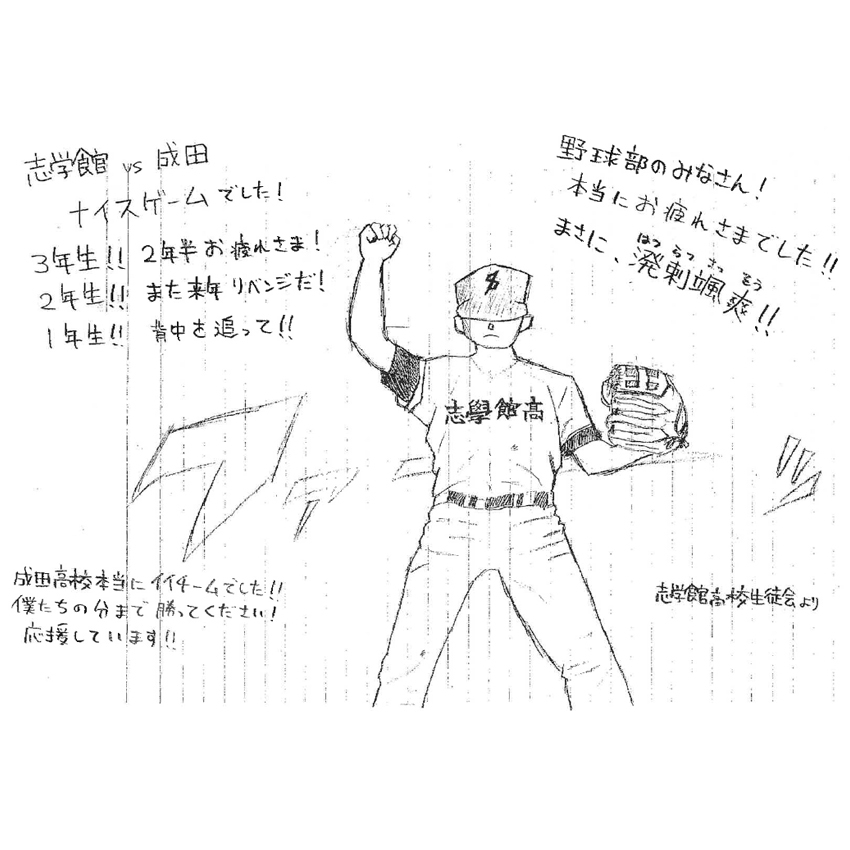 志学館 vs 成田
ナイスゲームでした!
3年生!! 2年半お疲れさま!
2年生!! また来年リベンジだ!
1年生!! 背中を追って!!
野球部のみなさん!
本当にお疲れさまでした!!
はつらつさっそう
まさに、溌剌颯爽!!
志學館高
成田高校本当にイイチームでした!!
僕たちの分まで勝ってください!
応援しています!!
志学館高校生徒会より